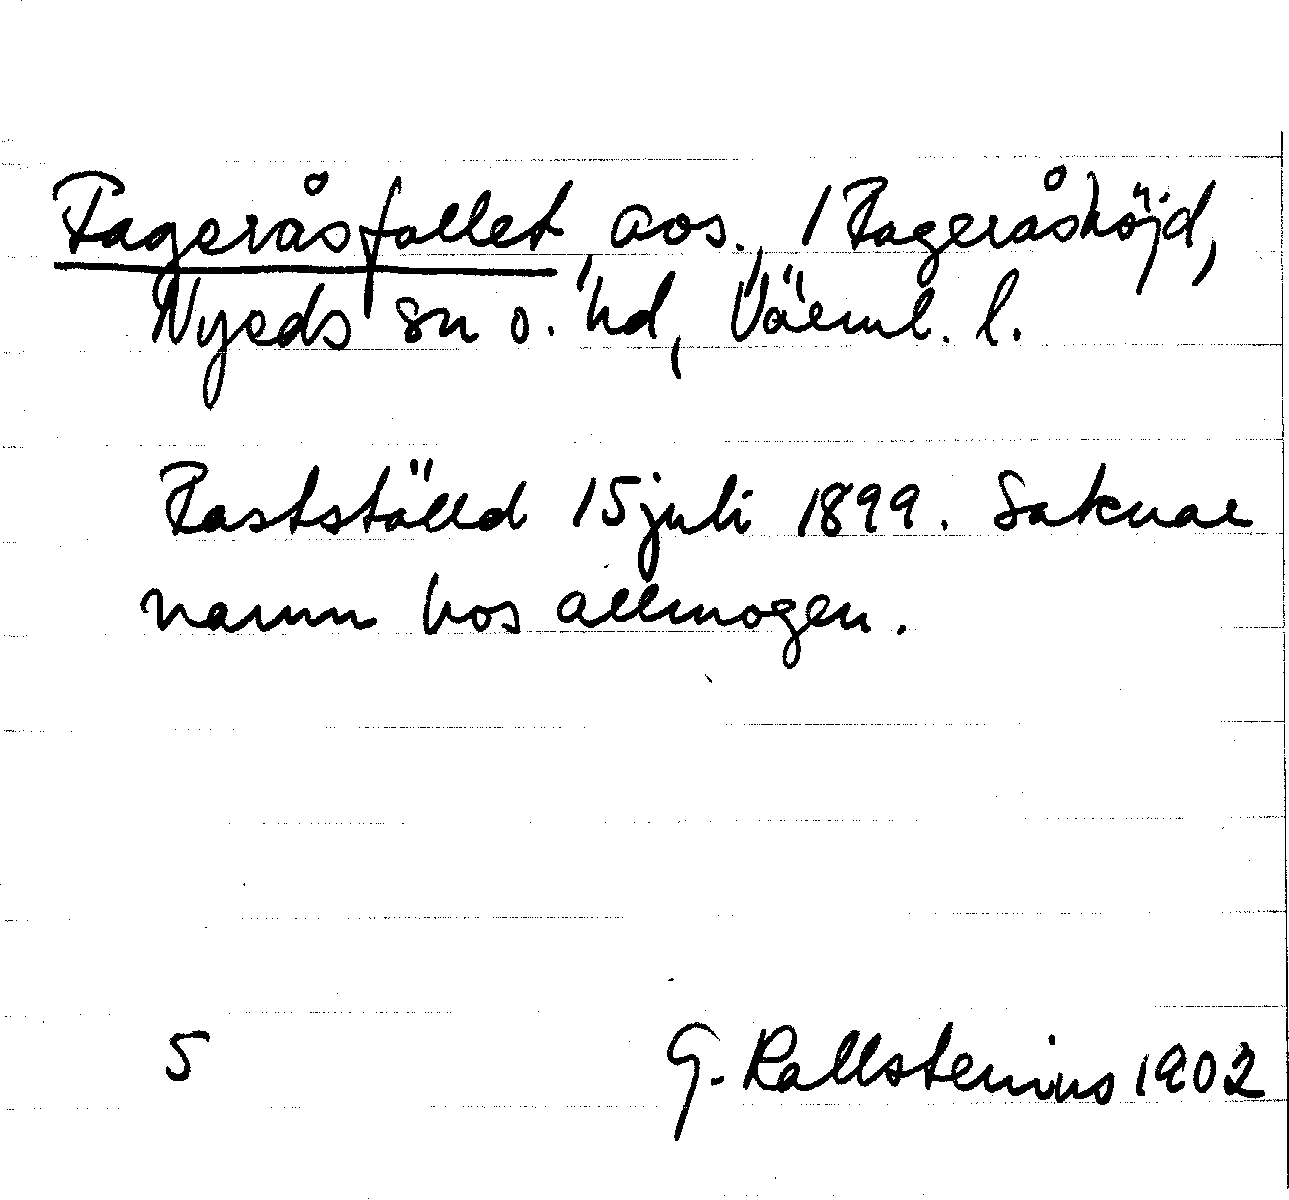 Fageråsfallet avs. 1 Fageråshöjd,
Nyeds sn o. hd, Värml. l.
Fastställd 15 juli 1899. Saknar
namn hos allmogen.
5 G. Kallstenius 1902